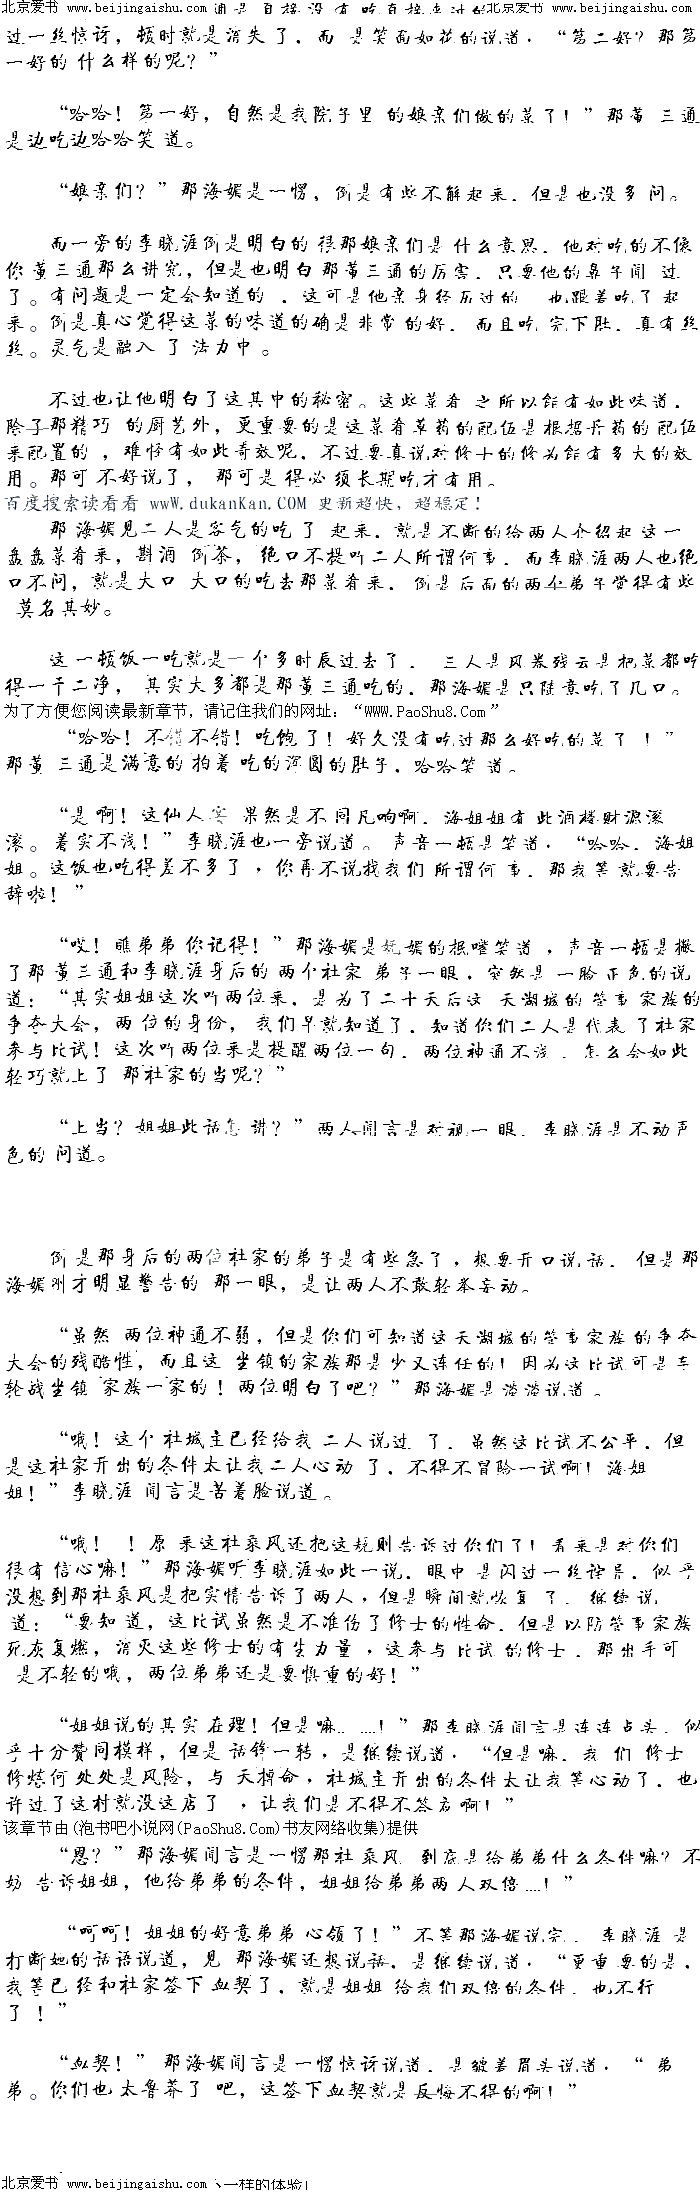 北京爱书 www.beijingaishu.com 通是直接没有吃直接来过的 北京爱书 www.beijingaishu.com
过一丝惊讶，顿时就是消失了．而 是笑面如花的说道．“第二好？那第
一好的 什么样的呢？”
“哈哈！第一好，自然是我院子里 的娘亲们做的菜了！”那黄 三通
是边吃边哈哈笑 道。
“娘亲们？”那海媚是一愣，倒是有些不解起来．但是也没多 问。
而一旁的李晓涯倒是明白的 很那娘亲们是 什么意思．他对吃的不像
你 黄三通那么讲究，但是也明白 那黄三通的厉害．只要他的鼻子闻 过
了。有问题是一定会知道的 ．这可是他亲身经历过的 也跟着吃了 起
来。倒是真心觉得这菜的味道的确是非常 的好．而且吃 完下肚．真有丝
丝。灵气是融入 了 法力中 。
不过也让他明白了这其中的秘密。这些菜肴 之所以能有如此味道．
除了那精巧 的厨艺外，更重要的是这菜肴草药的配伍是根据丹药的 配伍
来配置的 ，难怪有如此奇效呢．不过要真说对修士的修为能有多大的效
用。那可 不好说了， 那可是 得必 须长期吃才有用。
百度搜索读看看 wwW.dukanKan.COM 更新超快，超稳定！
那 海媚见二人是客气的吃 了 起来．就是不断的给两人介绍起 这一
盘盘菜肴来，斟酒 倒茶， 绝口不提听二人所谓何事．而李晓涯两人也绝
口不问，就是大口 大口的吃去那菜肴来．倒是后面的两个弟子觉得有些
莫名其妙。
这 一顿饭一吃就是一个多时辰过去了． 三人是风卷残云是把菜都吃
得一干二净， 其实大多都是那黄三通吃的．那海媚是只随意吃了几口。
为了方便您阅读最新章节，请记住我们的网址：“WWW.PaoShu8.Com”
“哈哈！不错不错！吃饱了！好久没有吃过那么好吃的菜了 ！”
那黄 三通是满意的 拍着 吃的浑圆的肚子．哈哈笑 道。
“是 啊！这仙人宴 果然是不 同凡响啊．海姐姐有 此酒楼财源滚
滚。着实不浅！”李晓涯也一旁说道。声音一顿是笑道，“哈哈．海姐
姐。这饭也吃得差不多了 ，你再不说找我们 所谓何 事．那我等 就要告
辞啦！”
“哎！瞧弟弟 你记得！”那海媚是妩媚的抿嘴笑道 ，声音一顿是撇
了那 黄三通和李晓涯身后的 两个杜家 弟子一眼．突然是 一脸 正色的说
道：“其实姐姐这次听两位来．是为了二十天后这 天湖城的 管事 家族的
争夺大会，两 位的身份， 我们早就知道了．知道你们二人是代表 了杜家
参与比试！这次听两位来是提醒两位一句．两位神通不浅 ．怎么会如此
轻巧就上了 那杜家的当呢？”
“上当？姐姐此话怎 讲？”两人闻言是对视一 眼．李晓涯是不动声
色的 问道。
倒是那身后的两位杜家的弟子是有些急了，想要开口说 话． 但是那
海媚刚才明显警告的 那一眼，是让两人不敢轻举妄动。
“虽然 两位神通不弱，但是你们可知道这天湖城的管事家族的争夺
大会的残酷性，而且这 坐镇的家族那是少又连任的！因为这比试可是车
轮战坐镇 家族一家的！两位明白了吧？”那海媚是淡淡说道 。
“哦！这个杜城主已经给我 二人说过 了．虽然这比试不公平．但
是这杜家开出的条件太让我二人心动 了．不得不冒险一试啊！海姐
姐！”李晓涯 闻言是苦着脸说道。
“哦！ ！原 来这杜乘风还把这规则告诉过你们了！看来是对你们
很有 信心嘛！”那海媚听李晓涯如此一说．眼中 是闪过一丝诧异．似乎
没想到那杜乘风是把实情告诉了两人，但是瞬间就恢复 了． 继续 说
道：“要知 道，这比试虽然是不准伤了修士的性命．但是以防管事家族
死灰复燃，消灭这些修士的有生力量 ，这参与比试 的修士．那出手可
是不轻的哦，两位弟弟还是要慎重的好！”
“姐姐说的其实 在理！但是嘛．．．．．．！”那李晓涯闻言是连连点头．似
乎十分赞同模样，但是 话锋一转，是继续说道．“但是嘛．我 们 修士
修炼何处处是风险，与 天搏命，杜城主开出的条件太让我等心动了．也
许过了这村就没这店了 ，让我们是不得不签啊！”
该章节由(泡书吧小说网(PaoShu8.Com)书友网络收集)提供
“恩？”那海媚闻言是一愣那杜 乘风 到底是给弟弟什么条件嘛？不
妨 告诉姐姐，他给弟弟的条件，姐姐给弟弟两 人双倍．．．．！”
“呵呵！姐姐的好意弟弟 心领了！”不等那海媚说完． 李晓涯 是
打断她的话语说道，见 那海媚还想说话．是继续说道，“更重要的是．
我等已 经和杜家签下血契了．就是姐姐 给我们双倍的条件．也不行
了 ！”
“血契！” 那海媚闻言是一愣惊讶说道．是皱着眉头说道，“ 弟
弟。你们也 太鲁莽了 吧，这签下血契就是反悔不得的啊！”
北京爱书 www.beijingaishu.com 一样的体验